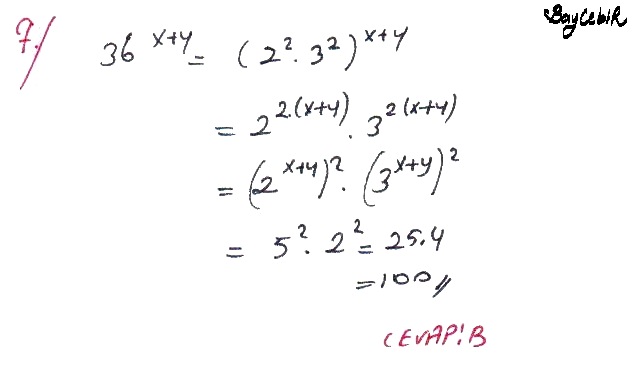 BayCebiR
7./ 36^(x+y) = (2^2 · 3^2)^(x+y)
= 2^(2.(x+y)) · 3^(2(x+y))
= (2^(x+y))^2 · (3^(x+y))^2
= 5^2 · 2^2 = 25.4
= 100//
CEVAP! B